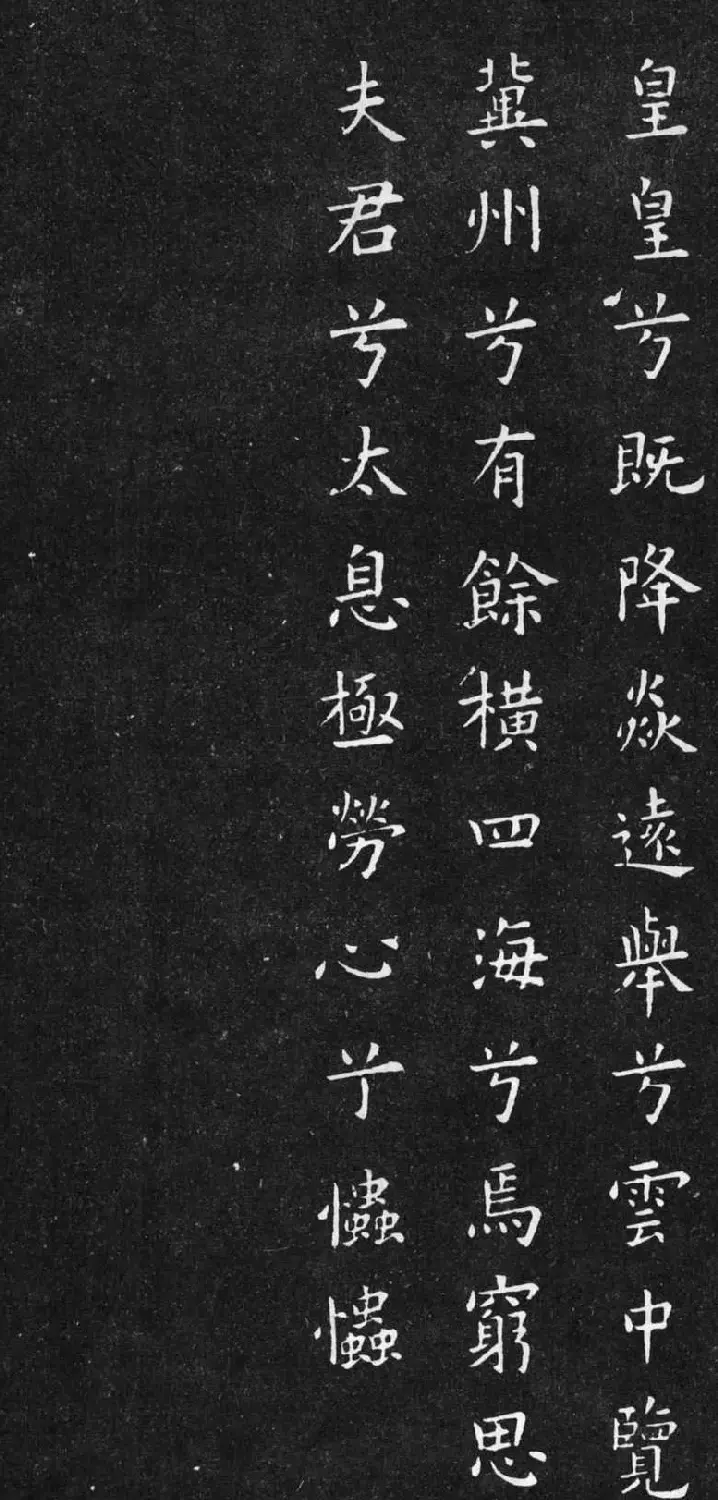 皇皇兮既降焱遠舉兮雲中覽
冀州兮有餘橫四海兮焉窮思
夫君兮太息極勞心兮忡忡